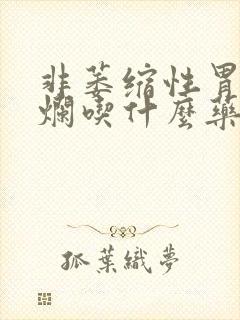 非萎缩性胃
爛喫什麼藥
孤葉織夢